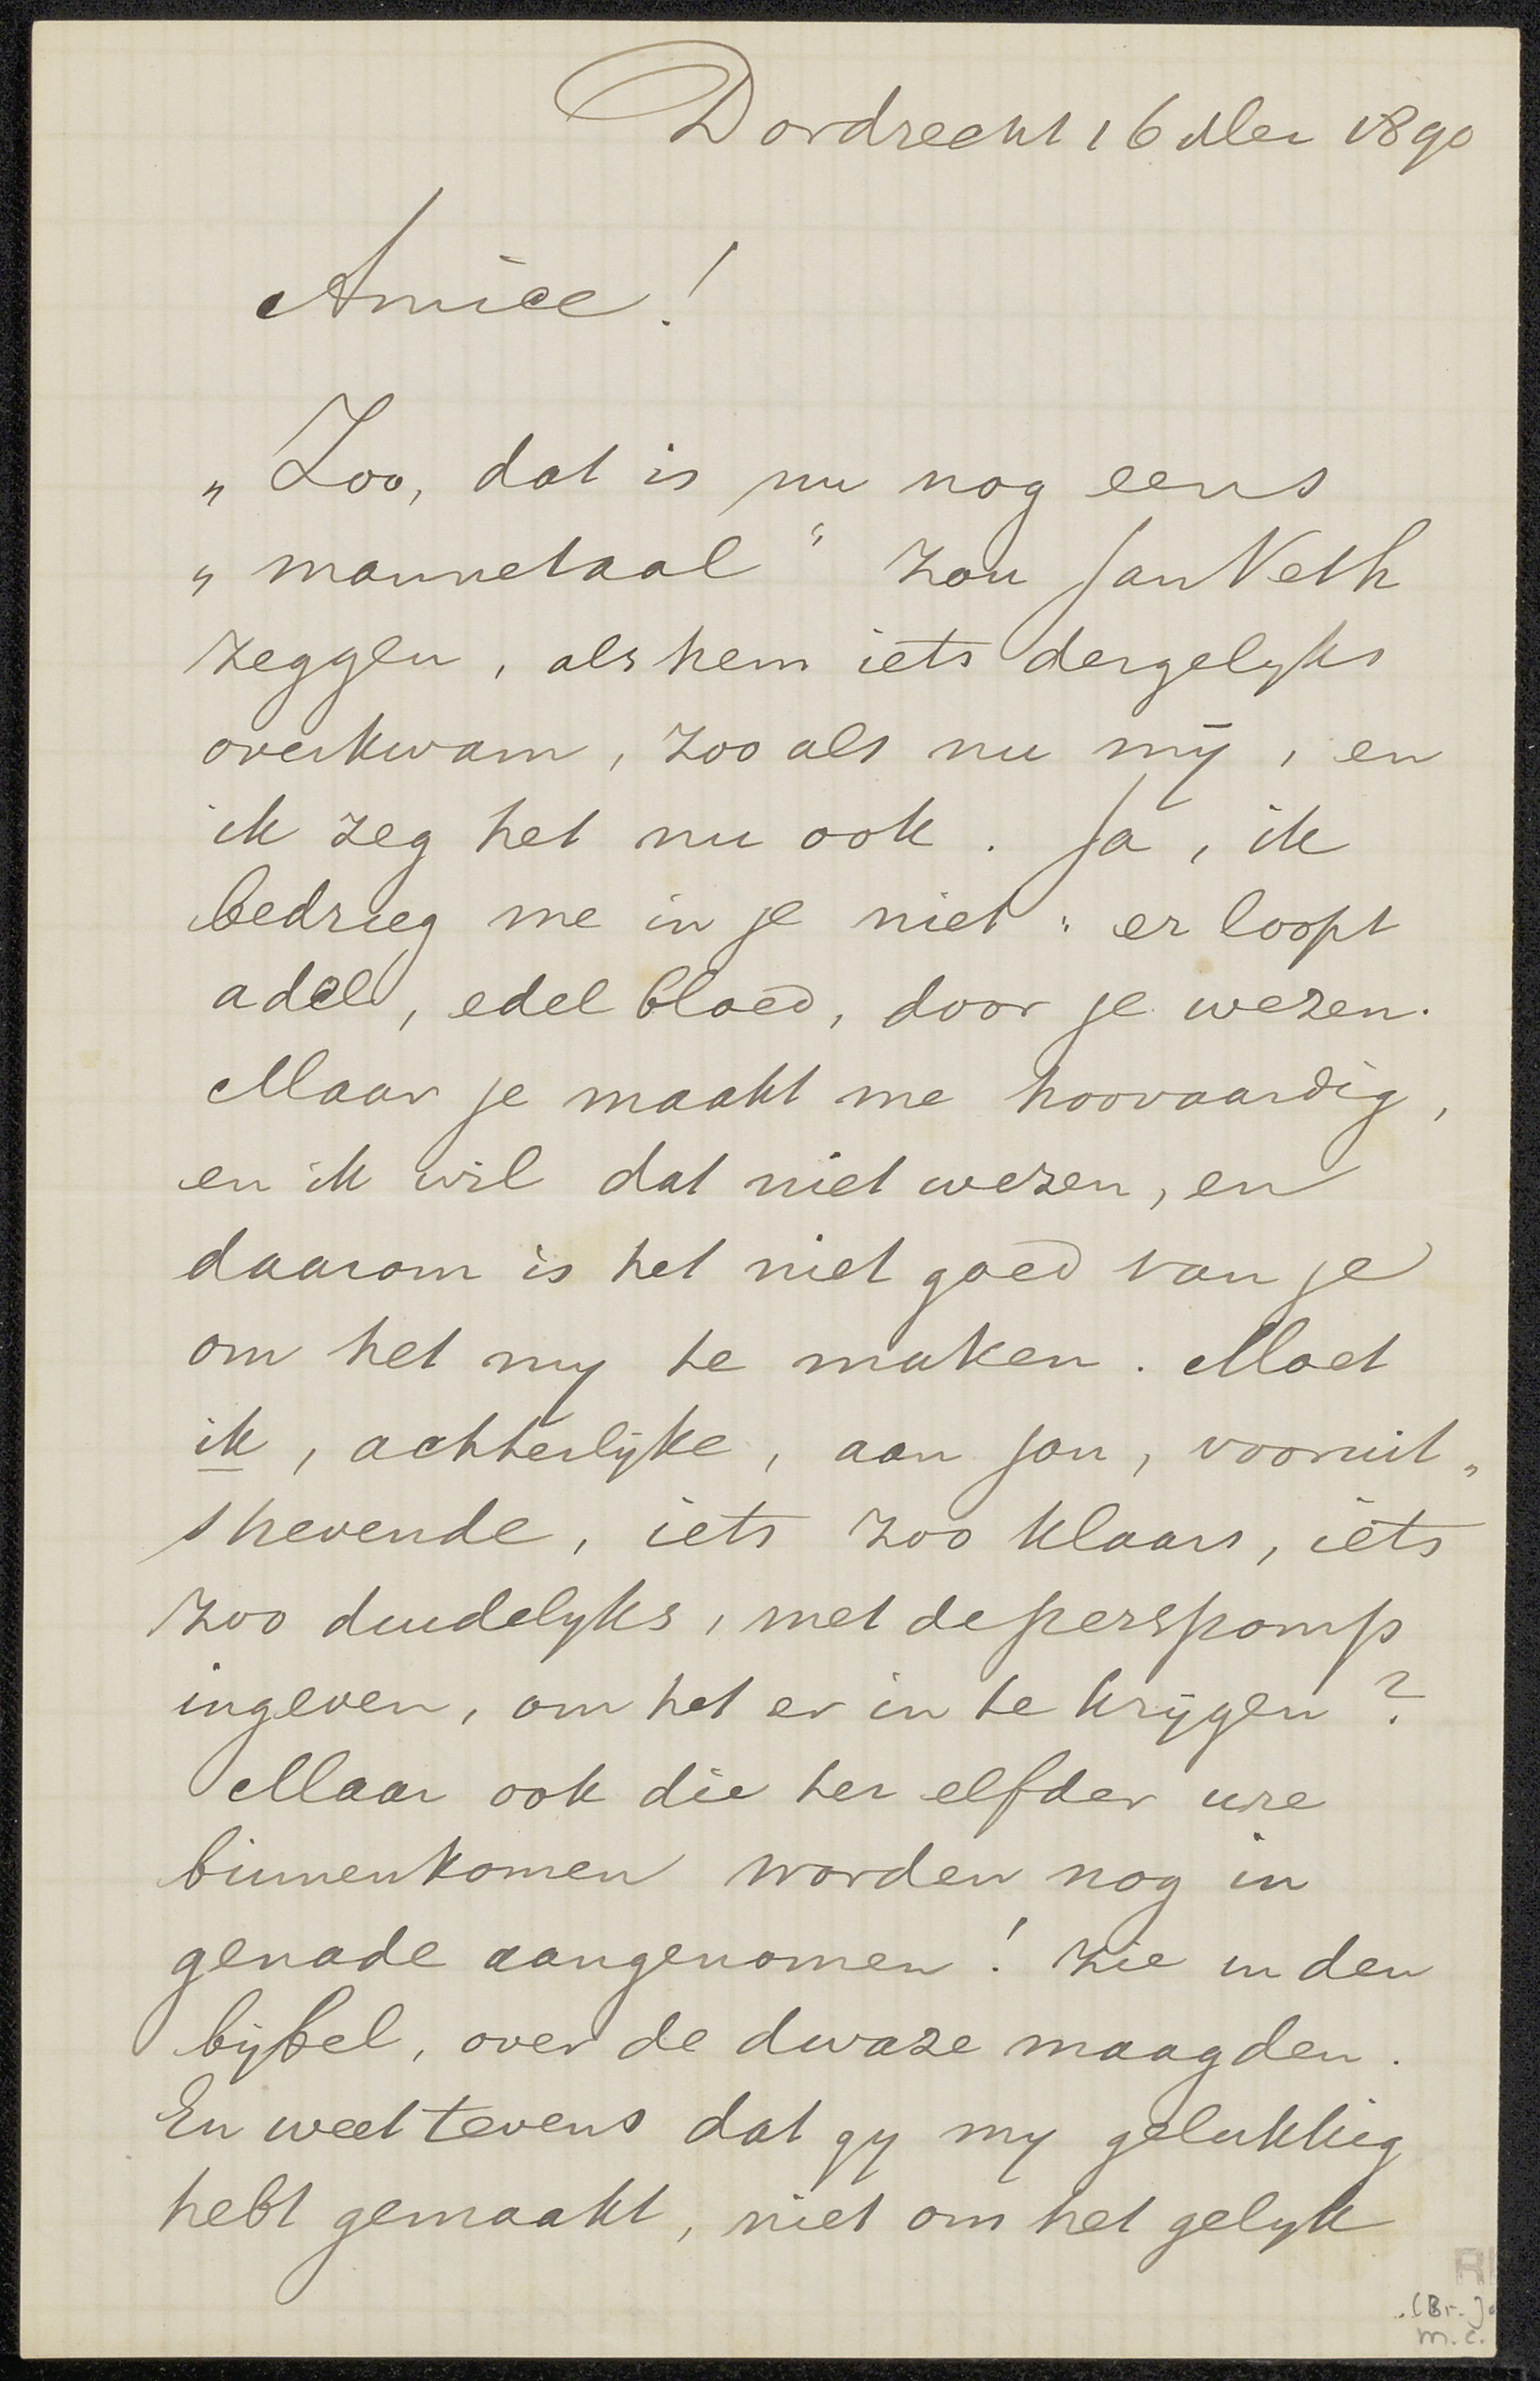 Dordrecht 16 Mei 1890
Amice!
„Zoo, dat is nu nog eens
„mannetaal“ zou Jan Veth
zeggen, als hem iets dergelyks
overkwam, zoo als nu mij, en
ik zeg het nu ook. Ja, ik
bedrieg me in je niet: er loopt
adel, edel bloed, door je wezen.
Maar je maakt me hoovaardig,
en ik wil dat niet wezen, en
daarom is het niet goed van je
om het my te maken. Moet
ik, achterlijke, aan jou, vooruit„
strevende, iets zoo klaars, iets
zoo duidelyks, met de perspomp
ingeven, om het er in te krijgen?
Maar ook die ter elfder ure
binnenkomen worden nog in
genade aangenomen! Zie in den
bijbel, over de dwaze maagden.
En weet tevens dat gy my gelukkig
hebt gemaakt, niet om het gelyk
(Br. J
m.c.